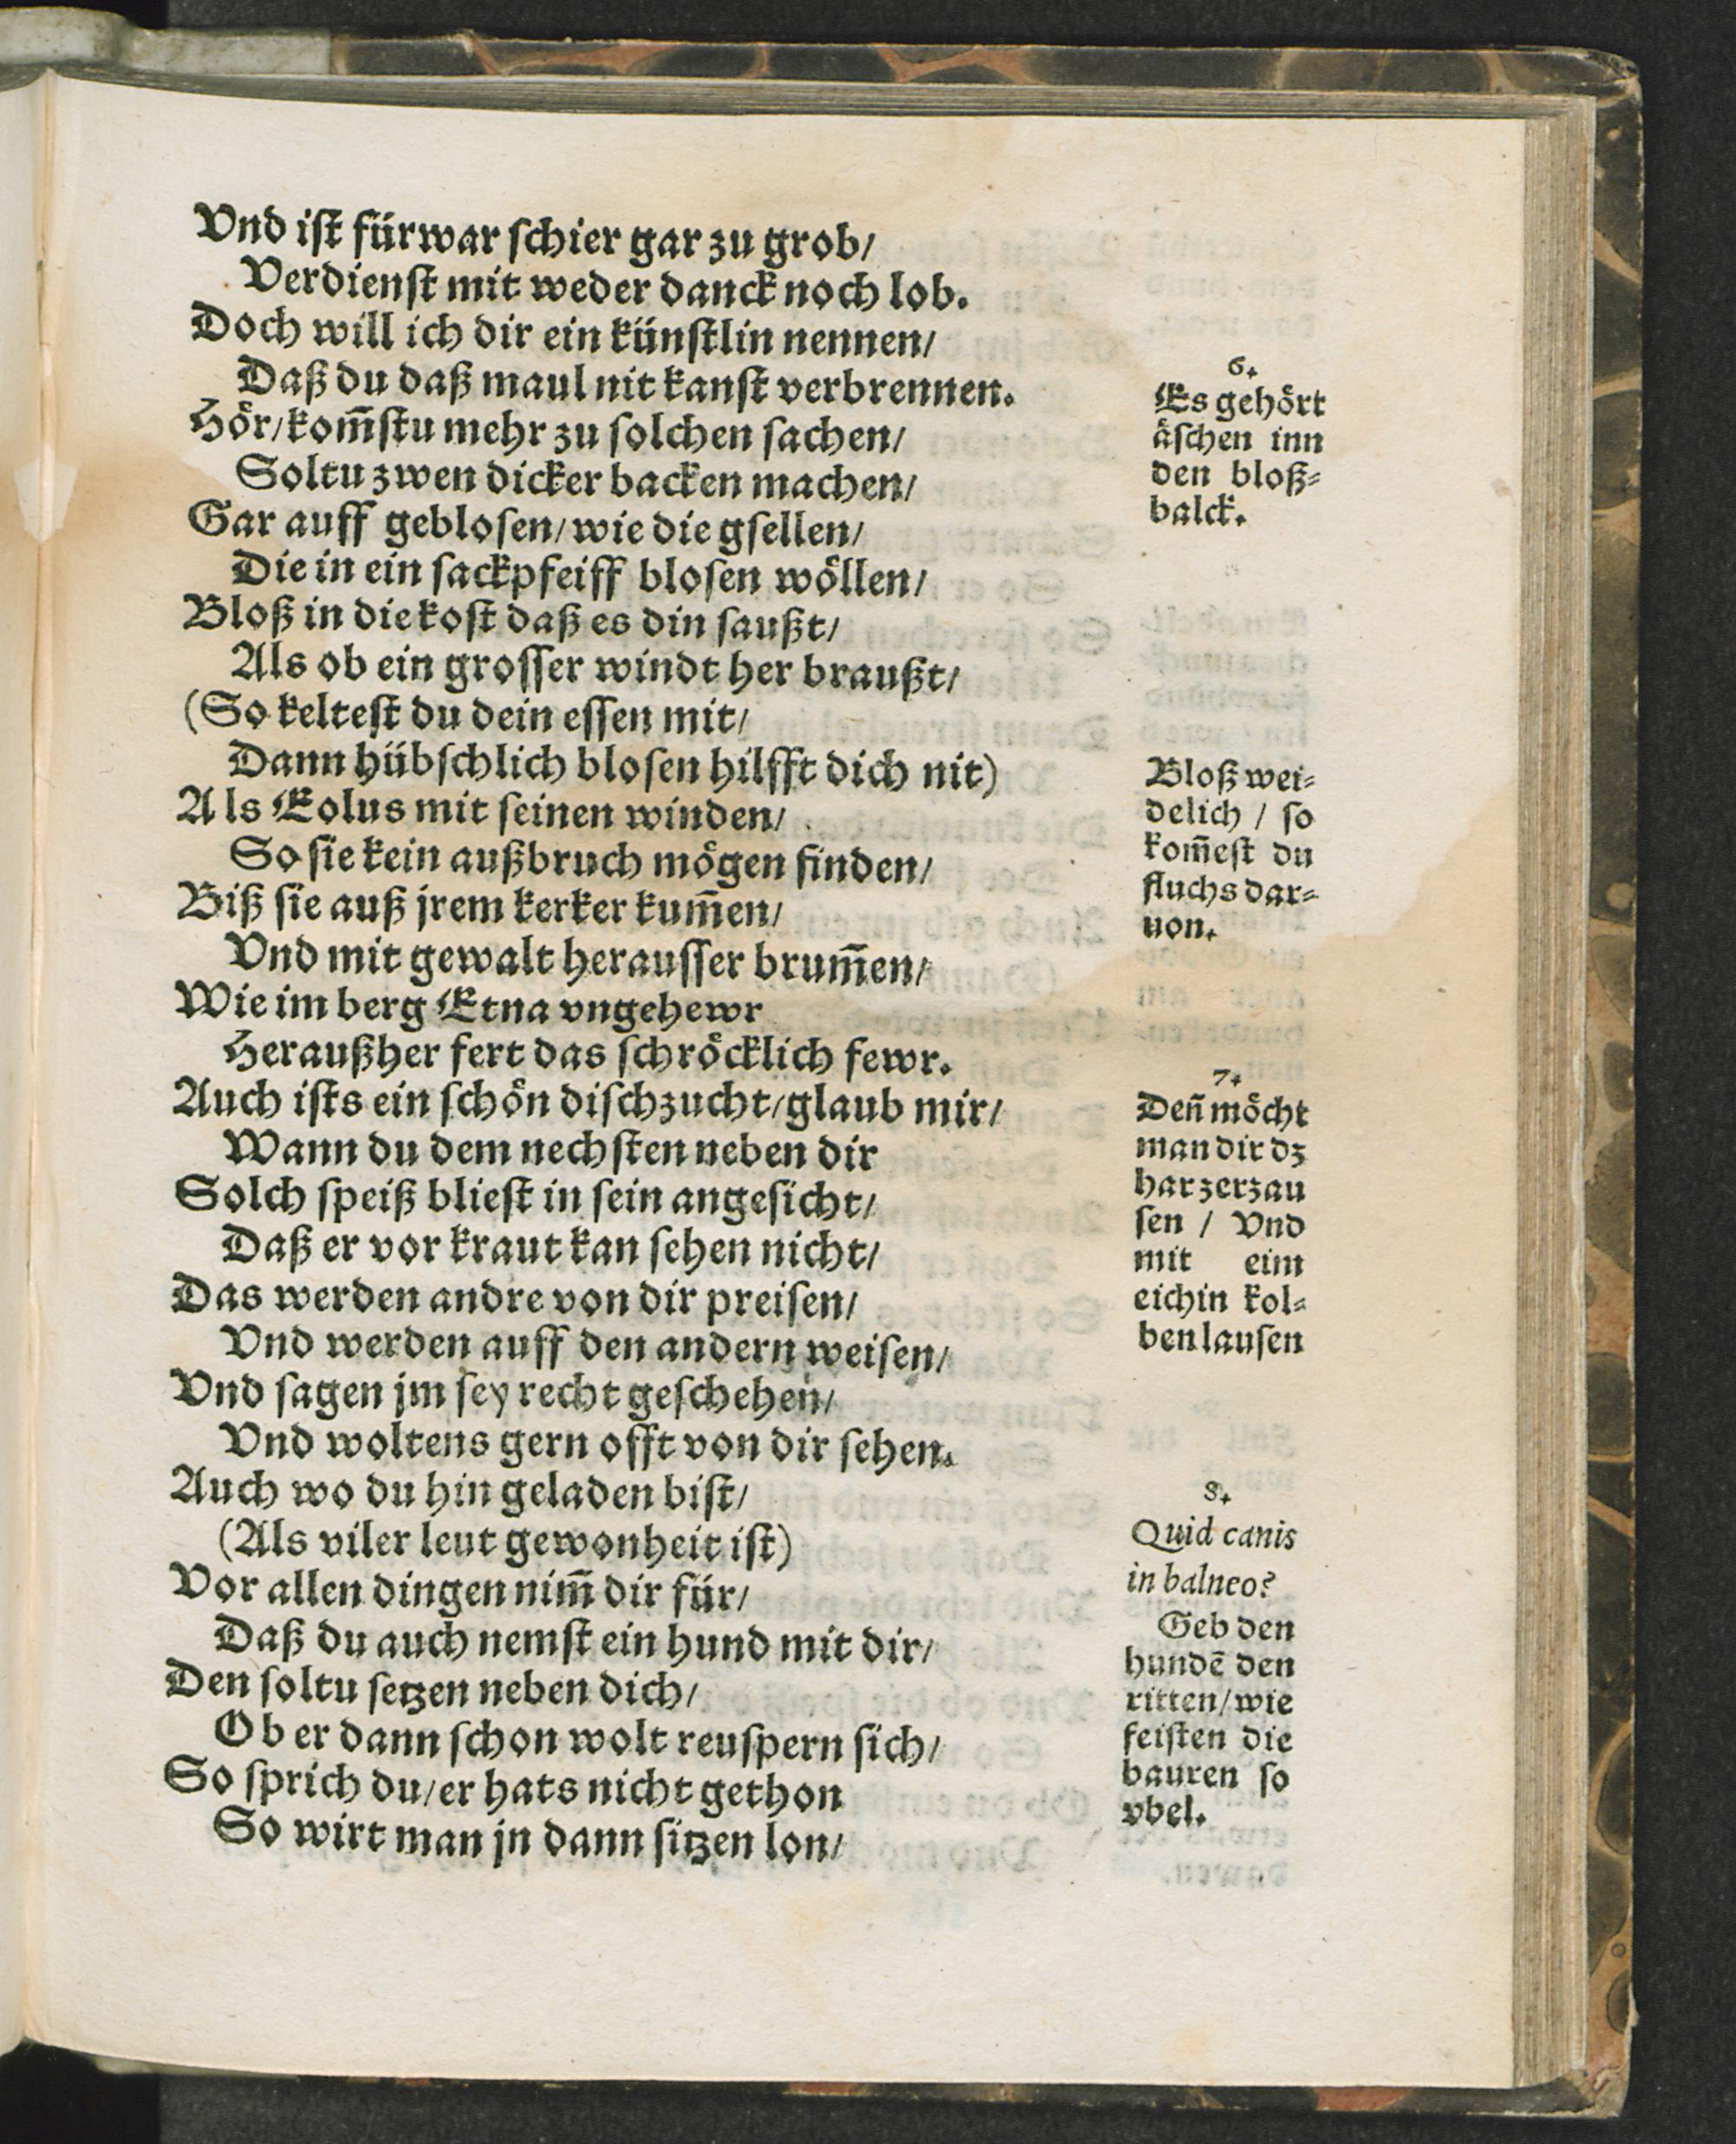 Vnd iſt fürwar ſchier gar zu grob/
Verdienſt mit weder danck noch lob.
Doch will ich dir ein künſtlin nennen/
Daß du daß maul nit kanſt verbrennen.
Hoͤr/ kom̄ſtu mehr zu ſolchen ſachen/
Soltu zwen dicker backen machen/
Gar auff geblosen/ wie die gſellen/
Die in ein ſackpfeiff bloſen woͤllen/
Bloß in die koſt daß es din ſaußt/
Als ob ein groſſer windt her braußt/
(So kelteſt du dein eſſen mit/
Dann hübſchlich bloſen hilfft dich nit)
Als Eolus mit ſeinen winden/
So ſie kein außbruch moͤgen finden/
Biß ſie auß jrem kerker kum̄en/
Vnd mit gewalt herauſſer brum̄en/
Wie im berg Etna vngehewr
Heraußher fert das ſchroͤcklich fewr.
Auch iſts ein ſchoͤn diſchzucht/ glaub mir/
Wann du dem nechſten neben dir
Solch ſpeiß blieſt in ſein angeſicht/
Daß er vor kraut kan ſehen nicht/
Das werden andre von dir preiſen/
Vnd werden auff den andern weiſen/
Vnd ſagen jm ſey recht geſchehen/
Vnd woltens gern offt von dir ſehen.
Auch wo du hin geladen biſt/
(Als viler leut gewonheit iſt)
Vor allen dingen nim̄ dir für/
Daß du auch nemſt ein hund mit dir/
Den ſoltu ſetzen neben dich/
Ob er dann ſchon wolt reuſpern ſich/
So ſprich du/ er hats nicht gethon
So wirt man jn dann ſitzen lon/
6.
Es gehoͤrt
aͤſchen inn
den bloß⸗
balck.
Bloß wei⸗
delich / ſo
kom̄eſt du
fluchs dar⸗
uon.
7.
Den̄ moͤcht
man dir dz
har zerzau
ſen / Vnd
mit eim
eichin kol⸗
ben lauſen
8.
Quid canis
in balneo?
Geb den
hundē den
ritten/ wie
feiſten die
bauren ſo
vbel.